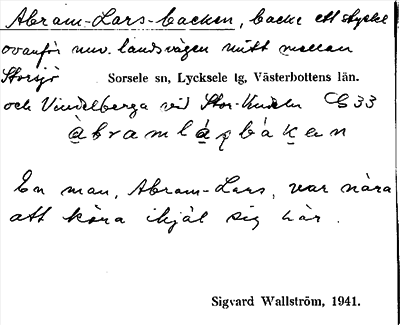 Abram-Lars-backen, backe ett stycke
ovanför nuv. landsvägen mitt mellan
Storsjö Sorsele sn, Lycksele tg, Västerbottens län.
och Vindelberga vid Stor-Vindeln C 33
àbramlázbàkan
En man, Abram-Lars, var nära
att köra ihjäl sig här.
Sigvard Wallström, 1941.